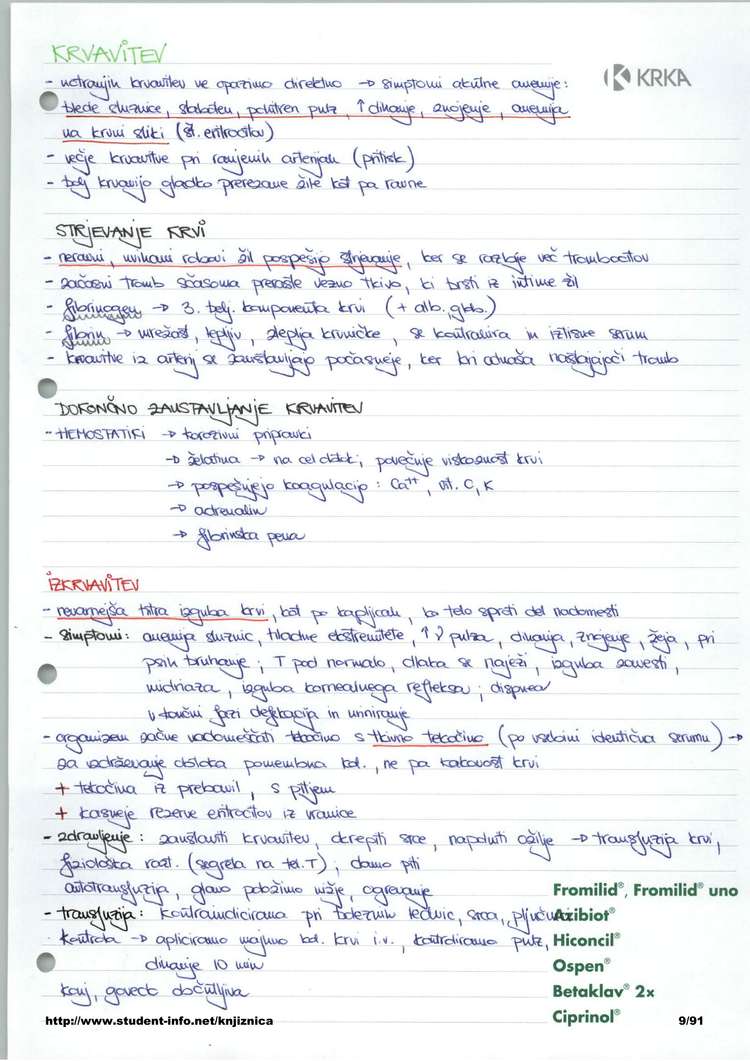 KRVAVITEV
KRKA
- notranjih krvavitev ne opazimo direktno → simptomi akutne anemije:
blede sluznice, slaboten, pohitren pulz, ↑ dihanje, znojenje, anemija
na krvni sliki (št. eritrocitov)
- večje krvavitve pri ranjenih arterijah (pritisk)
- bolj krvavijo gladko prerezane žile kot pa ravne
STRJEVANJE KRVI
- neravni, uvihani robovi žil pospešijo strjevanje, ker se razbije več trombocitov
- začasni tromb sčasoma preraste vezno tkivo, ki brsti iz intime žil
- fibrinogen → 3. belj. komponenta krvi (+ alb., glob.)
- fibrin → mrežast, lepljiv, zleplja krvničke, se kontrahira in iztisne serum
- krvavitve iz arterij se zaustavljajo počasneje, ker kri odnaša nastajajoči tromb
DOKONČNO ZAUSTAVLJANJE KRVAVITEV
- HEMOSTATIKI → korozivni pripravki
→ želatina → na cel obtok; povečuje viskoznost krvi
→ pospešujejo koagulacijo: Ca⁺⁺, vit. C, K
→ adrenalin
→ fibrinska pena
IZKRVAVITEV
- nevarnejša hitra izguba krvi, kot po kapljicah, ko telo sproti del nadomesti
- simptomi: anemija sluznic, hladne ekstremitete, ↑ ν pulza, dihanja, znojenje, žeja, pri
psih bruhanje; T pod normalo, dlaka se naježi, izguba zavesti,
midriaza, izguba kornealnega refleksa; dispnea
v končni fazi defekacija in uriniranje
- organizem začne nadomeščati tekočino s tkivno tekočino (po vsebini identična serumu) →
za vzdrževanje obtoka pomembna kol., ne pa kakovost krvi
+ tekočina iz prebavil, s pitjem
+ kasneje rezerve eritrocitov iz vranice
- zdravljenje: zaustaviti krvavitev, okrepiti srce, napolniti ožilje → transfuzija krvi,
fiziološka razt. (segreta na tel. T); damo piti
avtotransfuzija, glavo položimo nižje, ogrevanje
- transfuzija: kontraindicirana pri boleznih ledvic, srca, pljuč
kontrola → apliciramo majhno kol. krvi i.v., kontroliramo pulz,
dihanje 10 min
konj, govedo občutljiva
Fromilid®, Fromilid® uno
Azibiot®
Hiconcil®
Ospen®
Betaklav® 2x
Ciprinol®
http://www.student-info.net/knjiznica
9/91